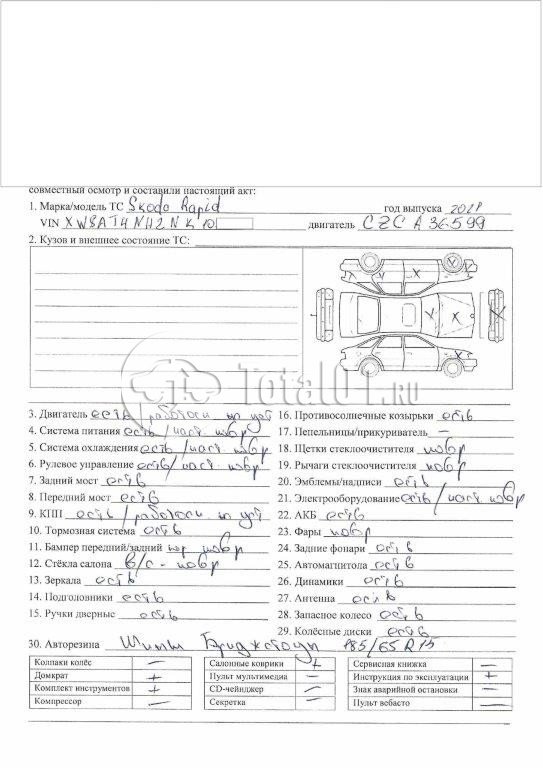 совместный осмотр и составили настоящий акт:
1. Марка/модель ТС Skoda Rapid год выпуска 2021
VIN XW8AT4NH2NK10 двигатель CZCA36599
2. Кузов и внешнее состояние ТС:
Total01.ru
3. Двигатель есть/работосп не уст
4. Система питания есть/част. повр
5. Система охлаждения есть/част. повр
6. Рулевое управление есть/част. повр
7. Задний мост есть
8. Передний мост есть
9. КПП есть/работосп не уст
10. Тормозная система есть
11. Бампер передний/задний пер повр
12. Стёкла салона в/с - повр
13. Зеркала есть
14. Подголовники есть
15. Ручки дверные есть
16. Противосолнечные козырьки есть
17. Пепельницы/прикуриватель –
18. Щетки стеклоочистителя повр
19. Рычаги стеклоочистителя повр
20. Эмблемы/надписи есть
21. Электрооборудование есть/част повр
22. АКБ есть
23. Фары повр
24. Задние фонари есть
25. Автомагнитола есть
26. Динамики есть
27. Антенна есть
28. Запасное колесо есть
29. Колёсные диски есть
30. Авторезина Шины Бриджстоун 185/65 R15
Колпаки колёс – Салонные коврики + Сервисная книжка –
Домкрат + Пульт мультимедиа – Инструкция по эксплуатации +
Комплект инструментов + CD-чейнджер – Знак аварийной остановки –
Компрессор – Секретка Пульт вебасто –